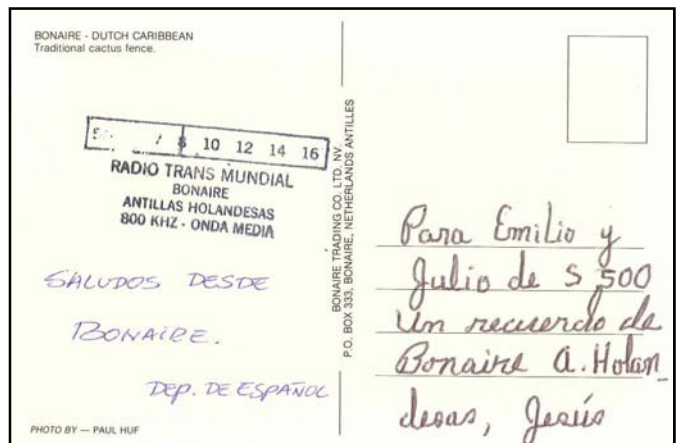 BONAIRE - DUTCH CARIBBEAN
Traditional cactus fence.
8 10 12 14 16
RADIO TRANS MUNDIAL
BONAIRE
ANTILLAS HOLANDESAS
800 KHZ - ONDA MEDIA
SALUDOS DESDE
BONAIRE.
DEP. DE ESPAÑOL
PHOTO BY — PAUL HUF
BONAIRE TRADING CO. LTD. NV.
P.O. BOX 333, BONAIRE, NETHERLANDS ANTILLES
Para Emilio y
Julio de S 500
Un recuerdo de
Bonaire A. Holan_
desas, Jesús